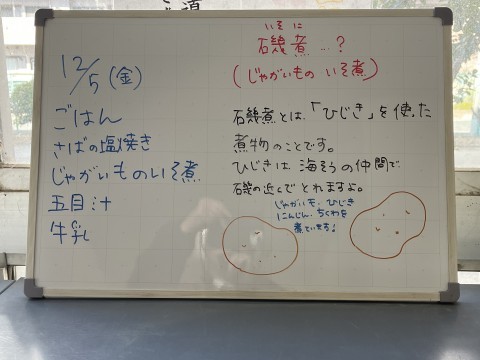 12/5(金)
ごはん
さばの塩焼き
じゃがいものいそ煮
五目汁
牛乳
いそに
磯煮…?
(じゃがいもの いそ煮)
磯煮とは、「ひじき」を使った
煮物のことです。
ひじきは 海そうの仲間で
磯の近くでとれますよ。
じゃがいも、ひじき
にんじん、ちくわを
煮ています!